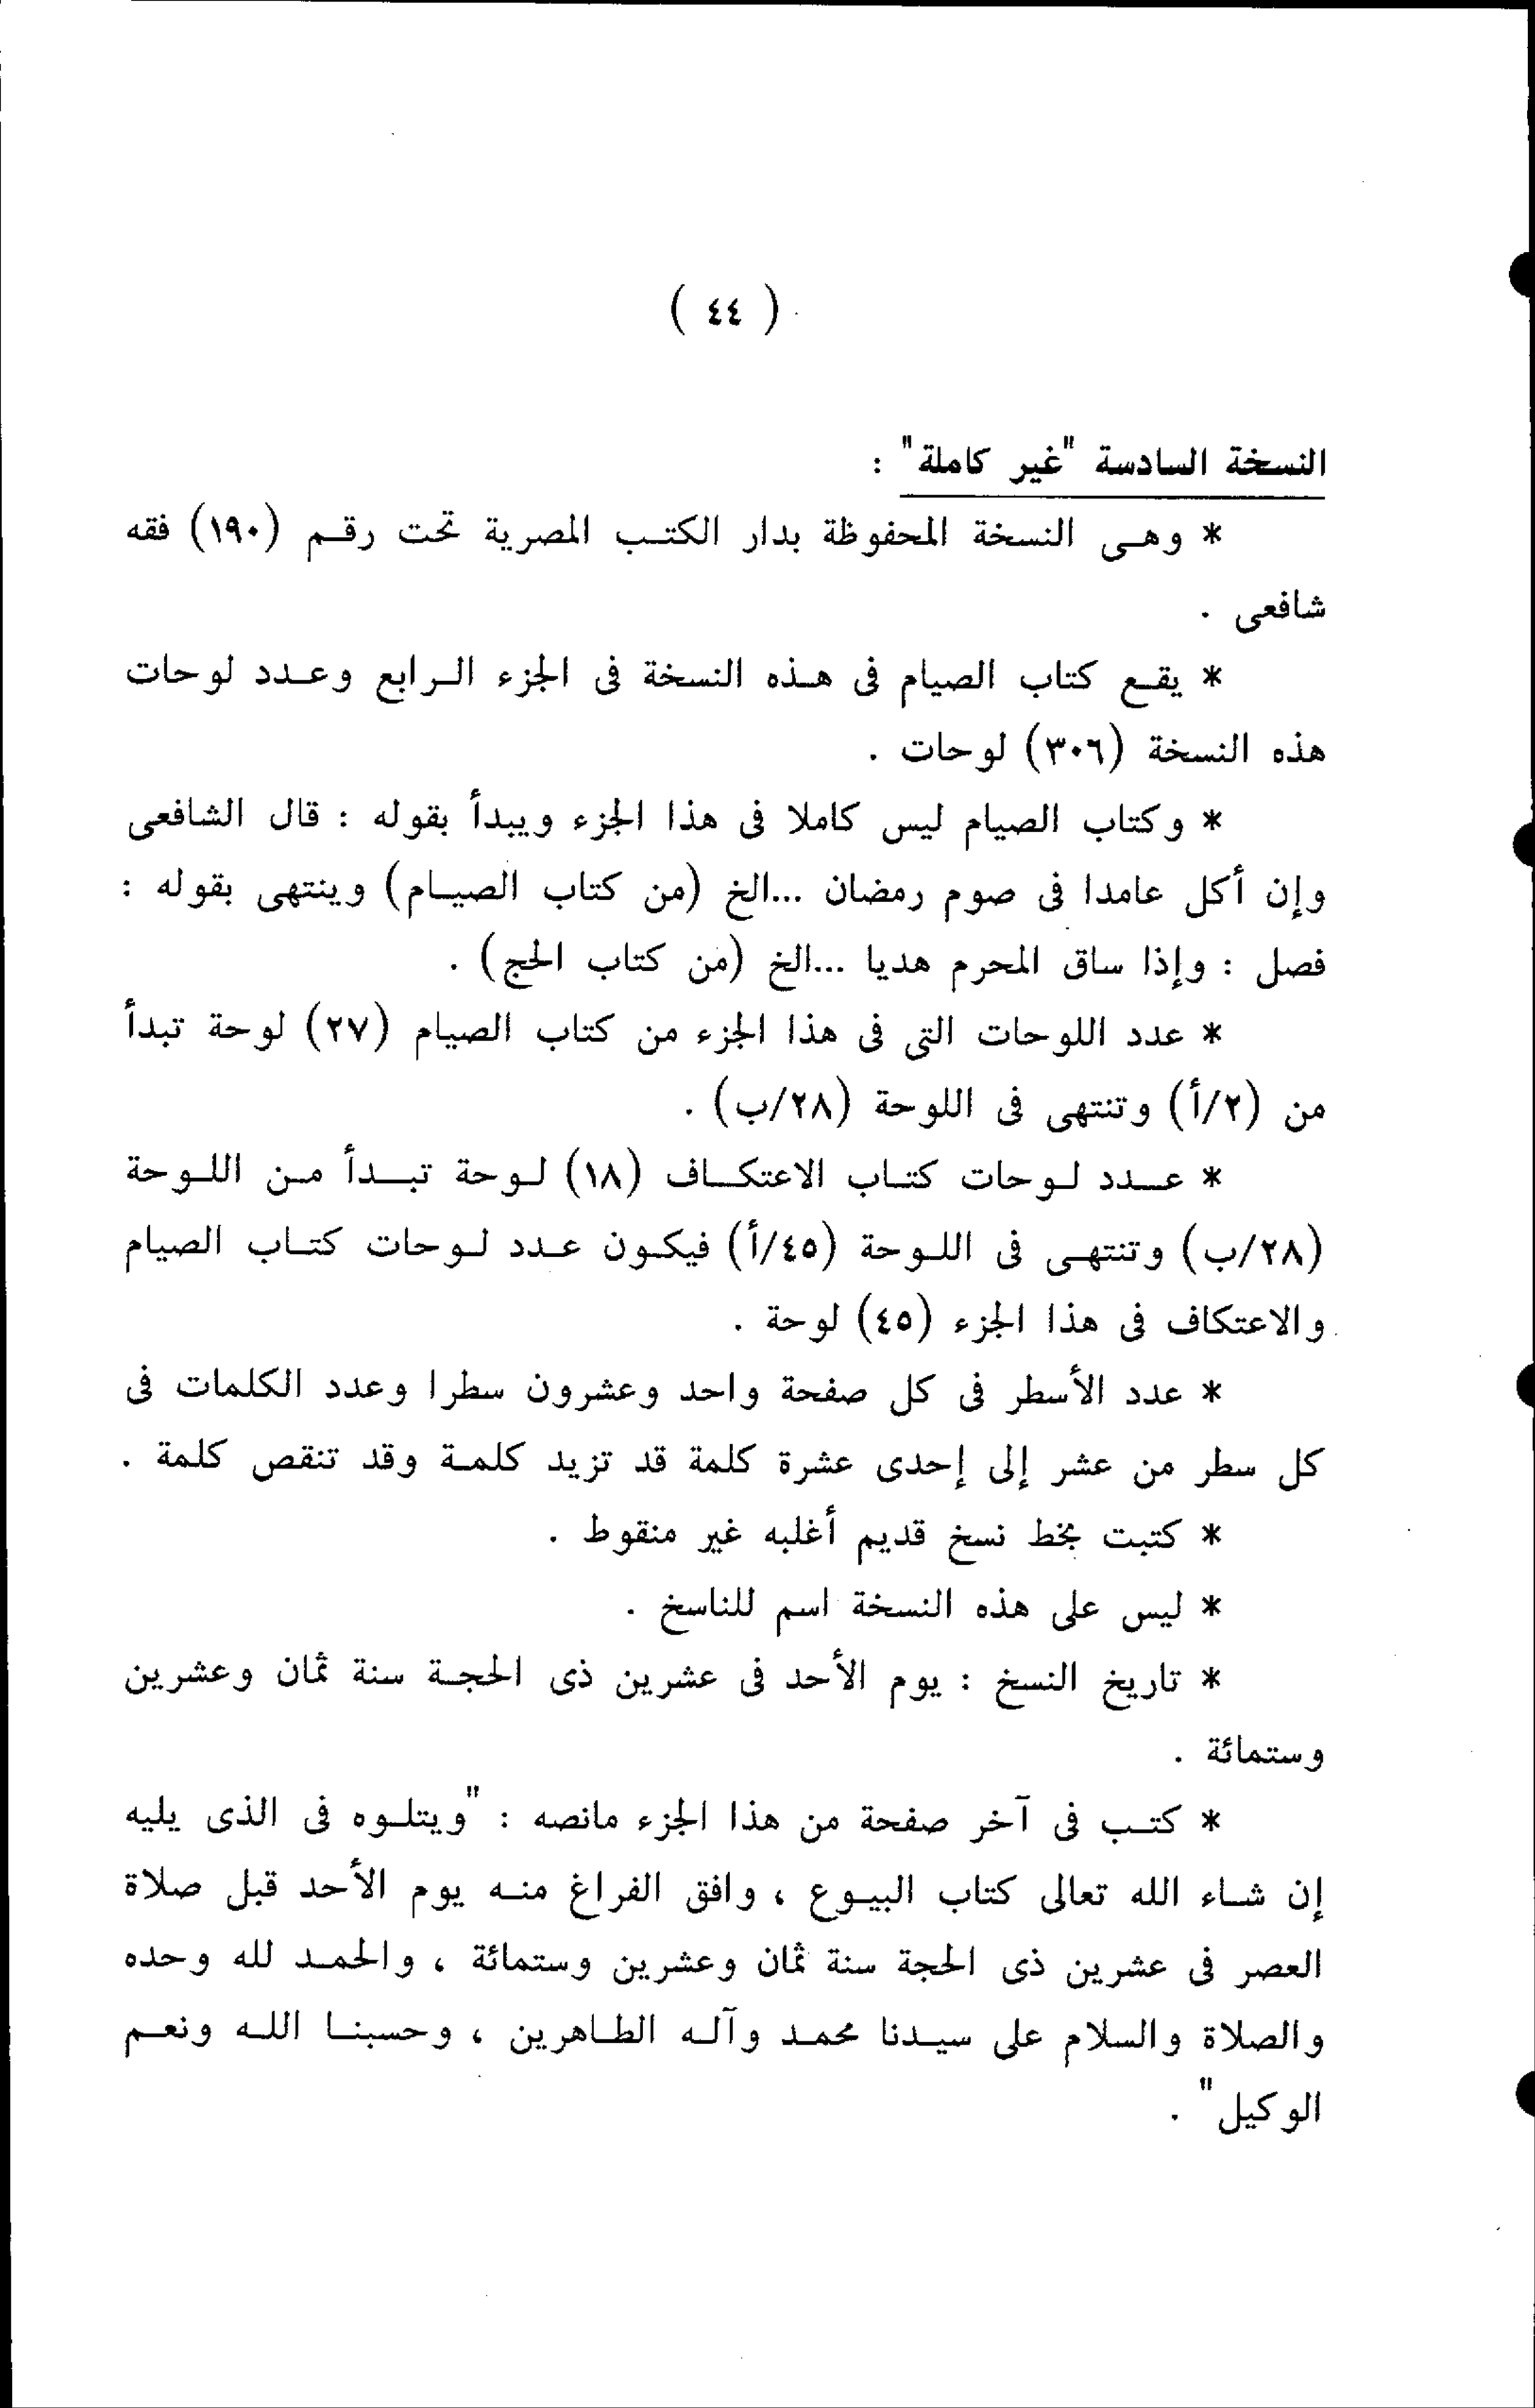 ( ٤٤ )
النسخة السادسة "غير كاملة" :
* وهى النسخة المحفوظة بدار الكتب المصرية تحت رقم (١٩٠) فقه
شافعى .
* يقع كتاب الصيام فى هذه النسخة فى الجزء الرابع وعدد لوحات
هذه النسخة (٣٠٦) لوحات .
* وكتاب الصيام ليس كاملا فى هذا الجزء ويبدأ بقوله : قال الشافعى
وإن أكل عامدا فى صوم رمضان ...الخ (من كتاب الصيام) وينتهى بقوله :
فصل : وإذا ساق المحرم هديا ...الخ (من كتاب الحج) .
* عدد اللوحات التى فى هذا الجزء من كتاب الصيام (٢٧) لوحة تبدأ
من (٢/أ) وتنتهى فى اللوحة (٢٨/ب) .
* عدد لوحات كتاب الاعتكاف (١٨) لوحة تبدأ من اللوحة
(٢٨/ب) وتنتهى فى اللوحة (٤٥/أ) فيكون عدد لوحات كتاب الصيام
والاعتكاف فى هذا الجزء (٤٥) لوحة .
* عدد الأسطر فى كل صفحة واحد وعشرون سطرا وعدد الكلمات فى
كل سطر من عشر إلى إحدى عشرة كلمة قد تزيد كلمة وقد تنقص كلمة .
* كتبت بخط نسخ قديم أغلبه غير منقوط .
* ليس على هذه النسخة اسم للناسخ .
* تاريخ النسخ : يوم الأحد فى عشرين ذى الحجة سنة ثمان وعشرين
وستمائة .
* كتب فى آخر صفحة من هذا الجزء مانصه : "ويتلوه فى الذى يليه
إن شاء الله تعالى كتاب البيوع ، وافق الفراغ منه يوم الأحد قبل صلاة
العصر فى عشرين ذى الحجة سنة ثمان وعشرين وستمائة ، والحمد لله وحده
والصلاة والسلام على سيدنا محمد وآله الطاهرين ، وحسبنا الله ونعم
الوكيل" .